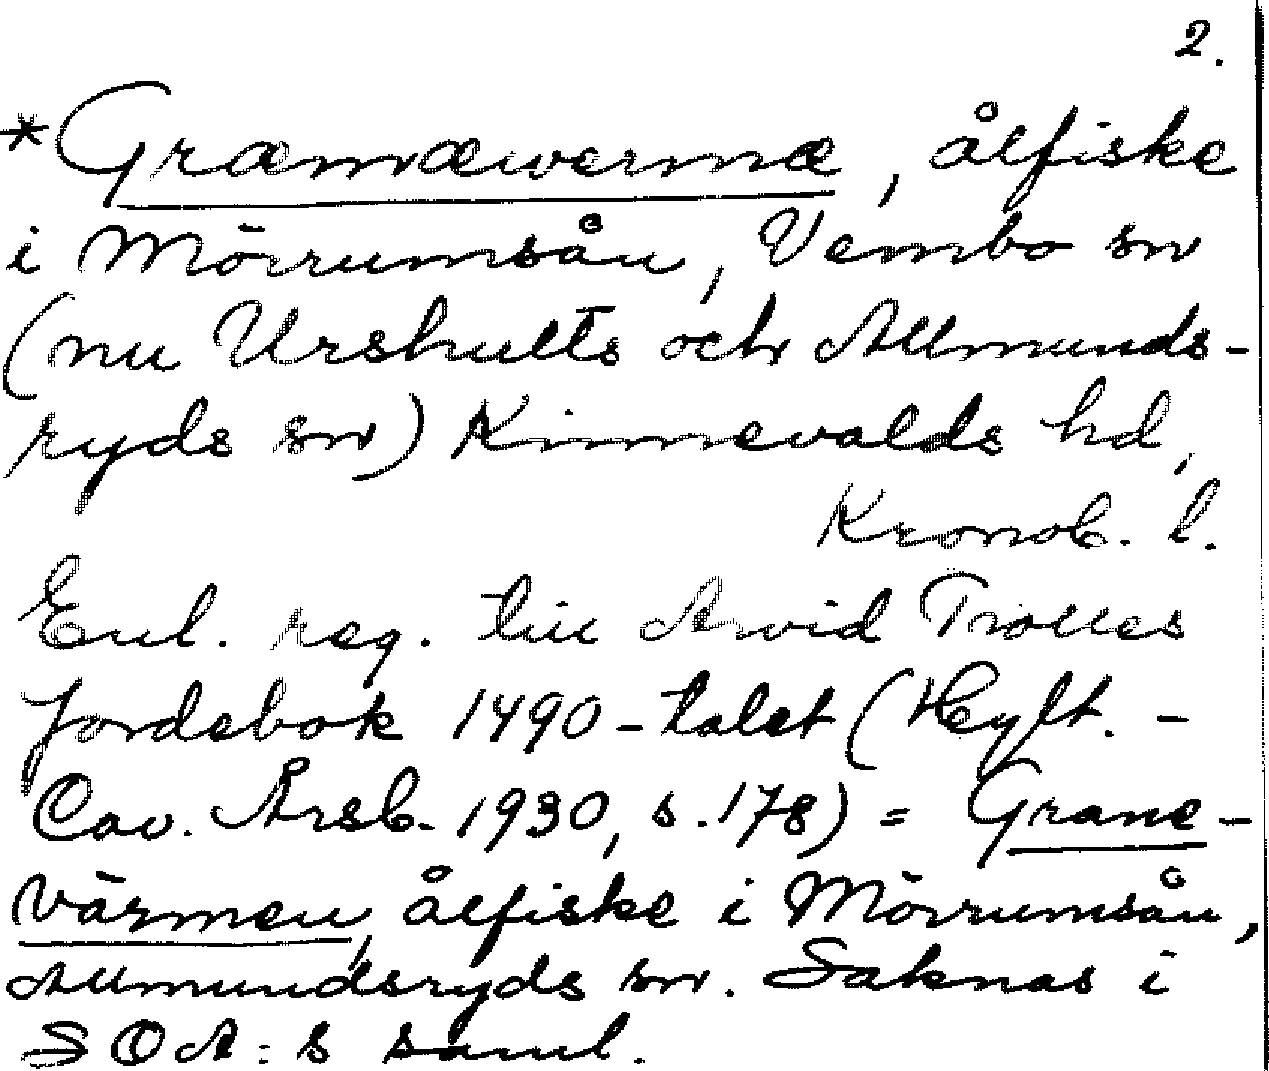 2.
*Græmæwermæ, ålfiske
i Mörrumsån, Vembo sn
(nu Urshults och Almunds-
ryds sn) Kinnevalds hd,
Kronob. l.
Enl. reg. till Arvid Trolles
jordebok 1490-talet (Hylt.-
Cav. Årsb. 1930, s. 178) = Grane-
värmen, ålfiske i Mörrumsån,
Almundsryds sn. Saknas i
SOA:s saml.